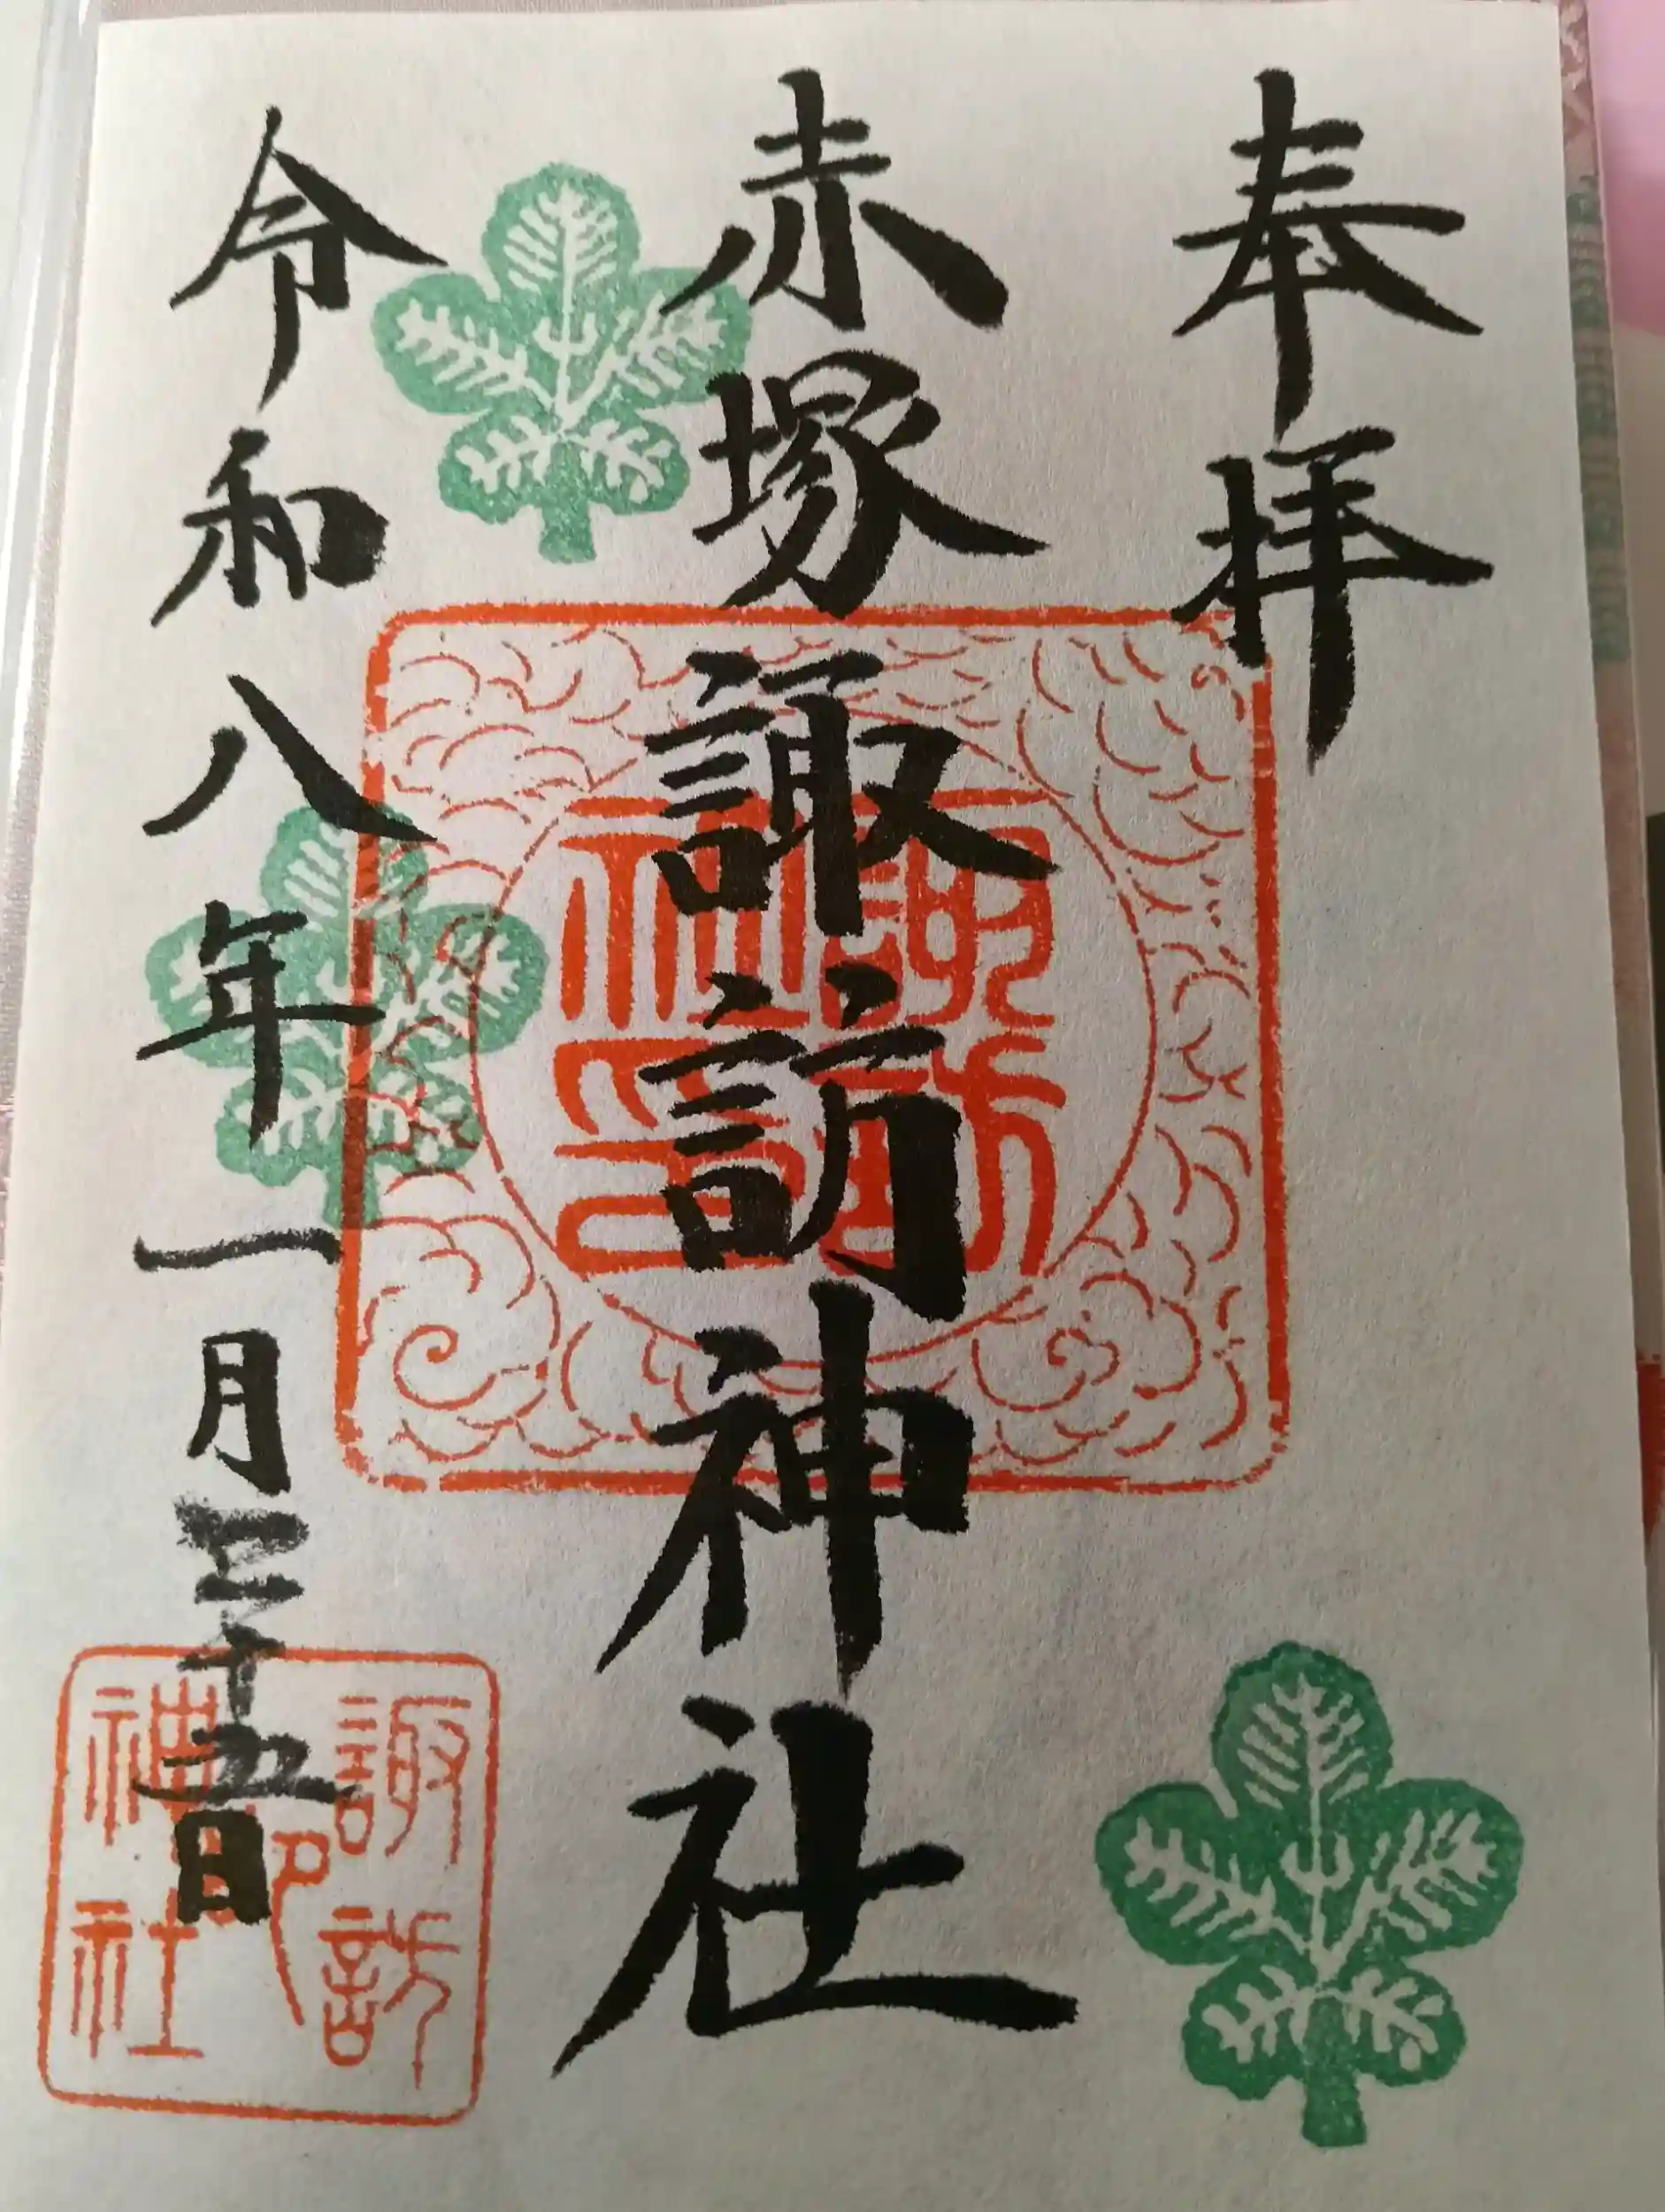 奉拝
赤塚諏訪神社
令和八年一月二十五日
諏訪神社印